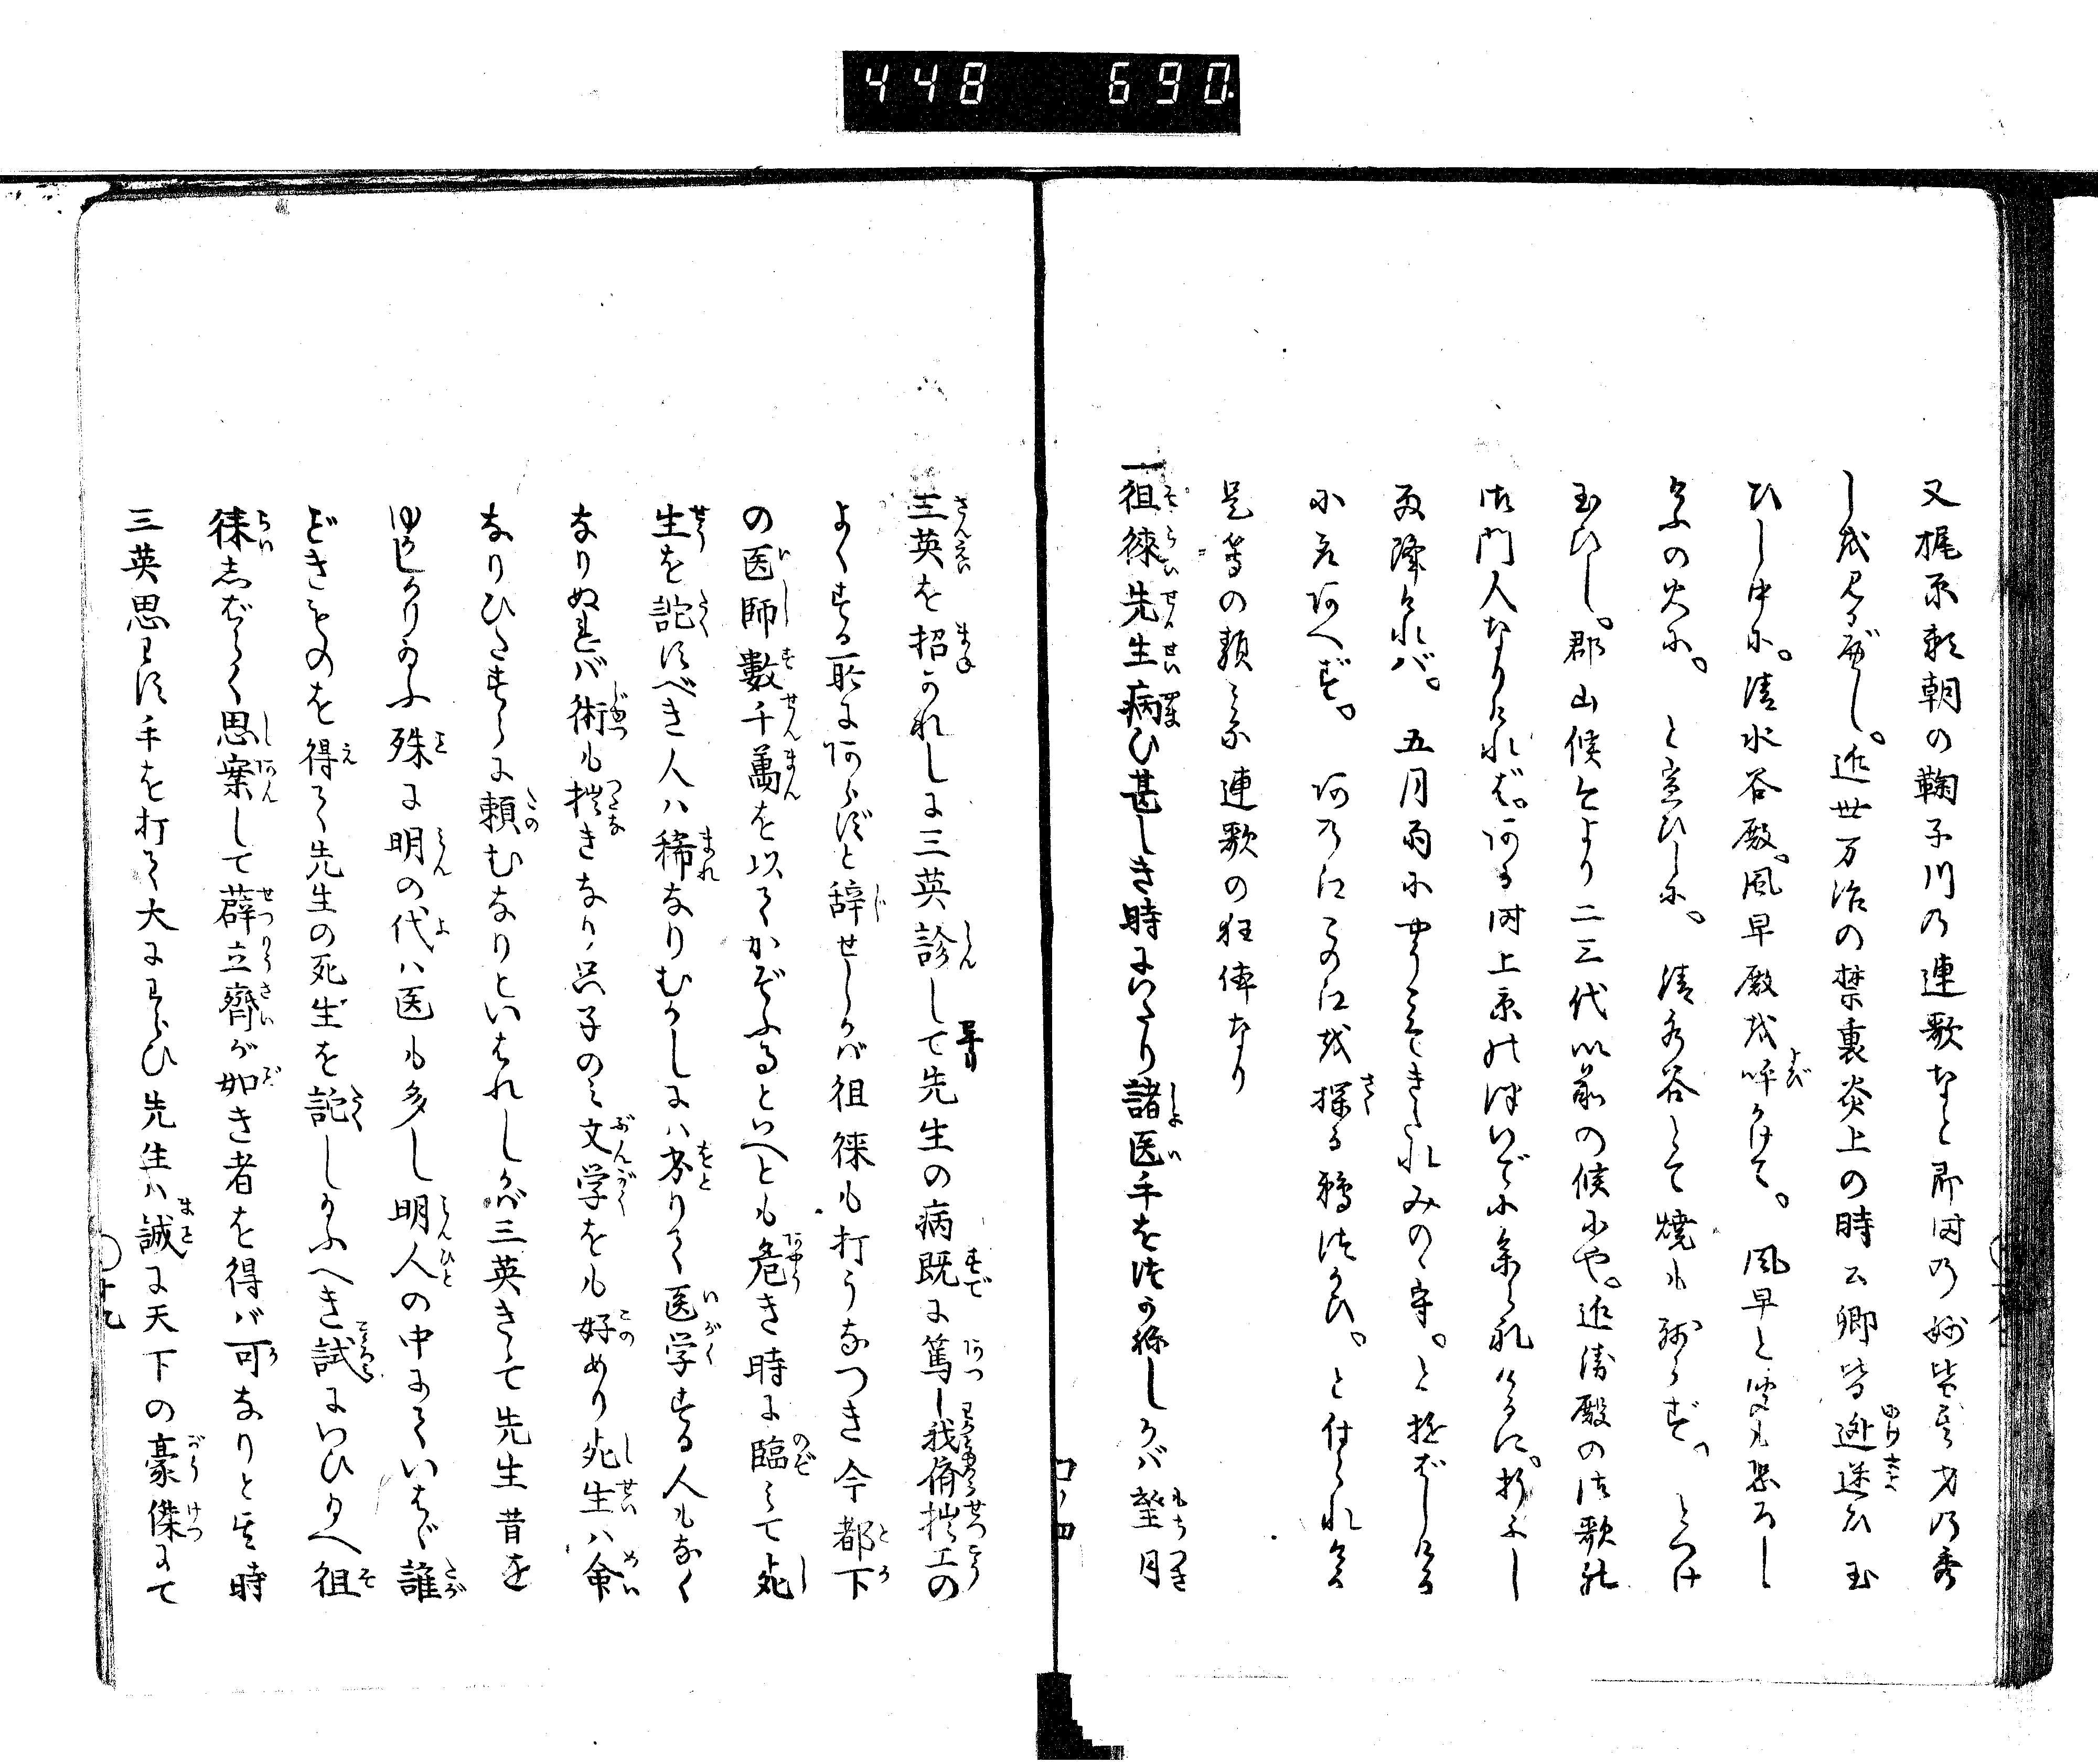 448 690
又梶原頼朝の鞠子川の連歌など即因の妙皆其才の秀
し也見るべし。近世万治の禁裏炎上の時公卿皆逃迷ひ玉
ひし中に。清水谷殿。風早殿を呼かけて。風早と聞も恐ろし
けふの火に。と宣ひしに。清水谷とて焼も残らず。とつけ
玉ひし。郡山候今より二三代以前の候にや。近衛殿の御歌の
御門人なりければ。ある時上京の御ついでに参られけるに。折ふし
雨降ければ。五月雨にやうこそきたれみのゝ守。と遊ばしける
に言あへず。あの江この江を探る鵜つかひ。と付られける
是等の類みな連歌の狂俳なり
一徂徠先生病ひ甚しき時にいたり諸医手をつかねしかバ望月
三英を招かれしに三英診して先生の病既に篤し我儕拙工の
よくする所にあらずと辞せしかバ徂徠も打うなづき今都下
の医師数千萬を以てかぞふるといへとも危き時に臨みて死
生を託すべき人ハ稀なりむかしにハ劣りて医学する人もなく
なりぬれバ術も拙きなり只子のミ文学をも好めり死生ハ命
なりひたすらに頼むなりといはれしかバ三英きゝて先生昔を
ゆかしかり玉ふ殊に明の代ハ医も多し明人の中にていはゞ誰
どきものを得て先生の死生を託し玉ふべき試にいひ玉へ徂
徠しばらく思案して薛立齊が如き者を得バ可なりと其時
三英思はず手を打て大にわらひ先生ハ誠に天下の豪傑にて